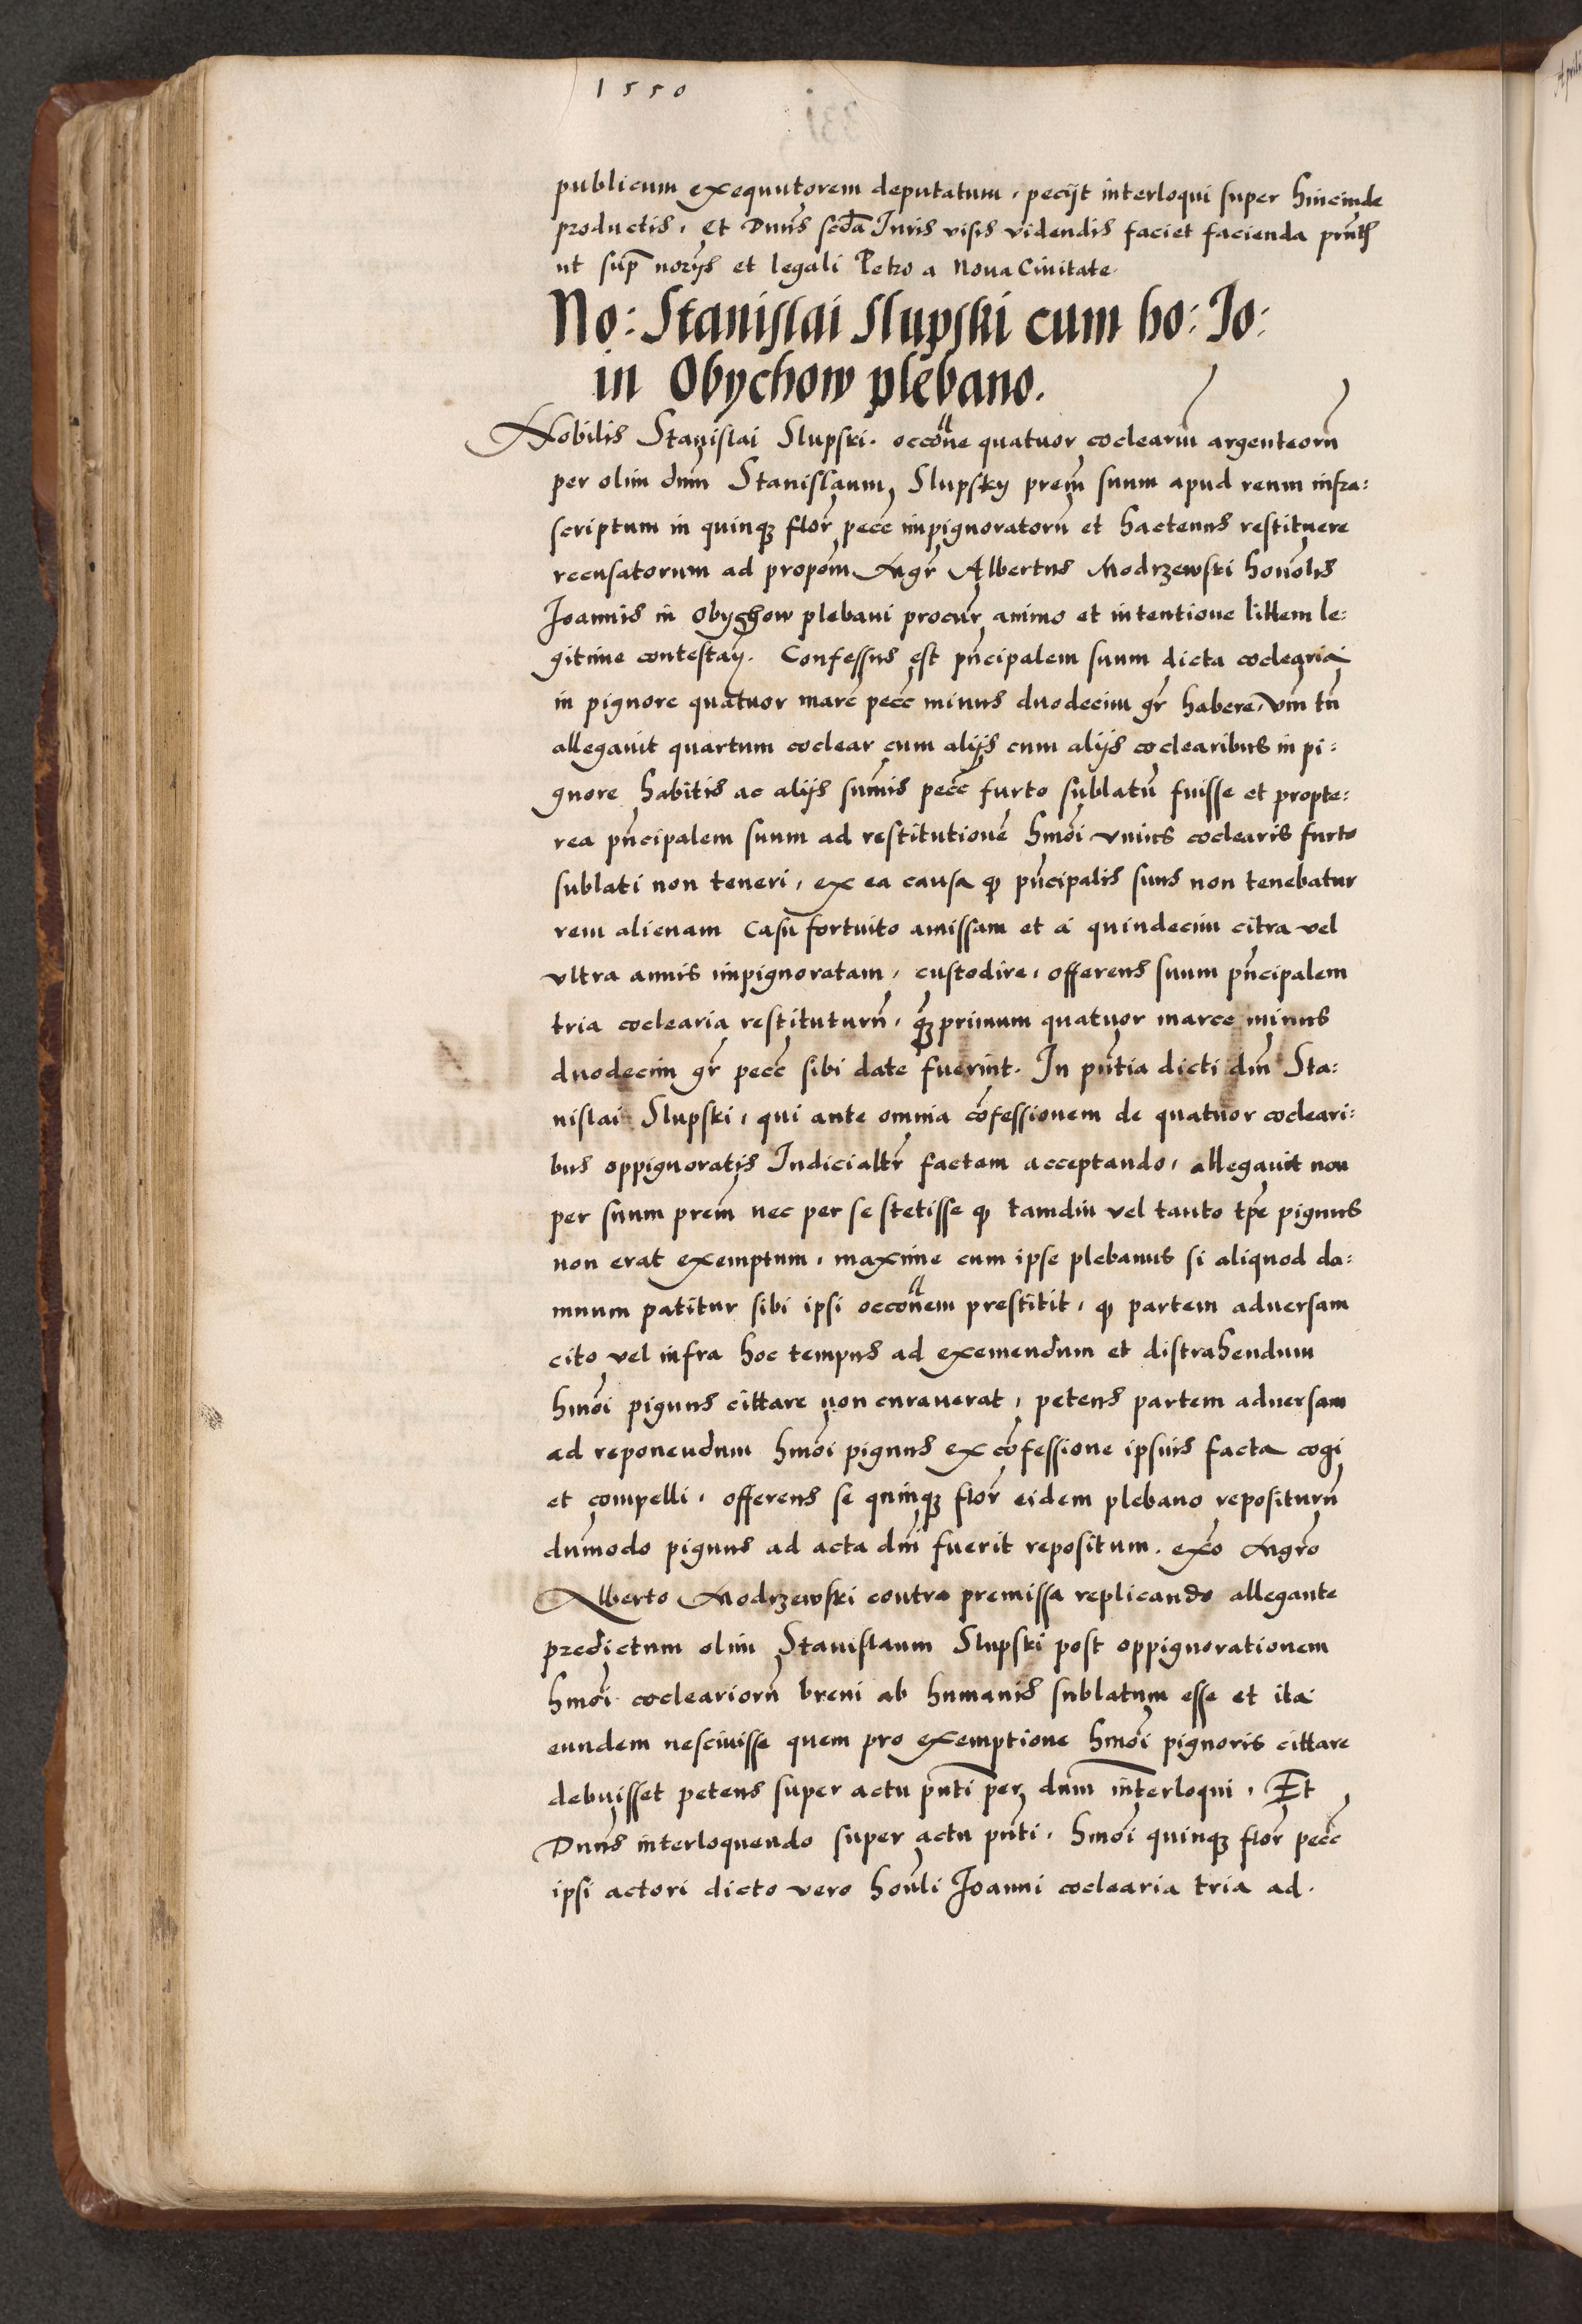 1550
publicum exequutorem deputatum, pecijt interloqui super hincinde
productis, Et Dnus scdā Juris visis videndis faciet facienda pñtƀ
ut sup̄ norijs et legali Petro a Nova Civitate.
No: Stanislai Slupski cum ho: Jo:
in Obychow plebano.
Nobilis Stanislai Slupski. occōne quatuor coclearium argenteorū
per olim dnm Stanislaum Slupsky prem̄ suum apud reum infra:
scriptum in quinqꝫ flor̄ pecc̄ impignoratorū et hactenus restituere
recusatorum ad propōm Mgr̄ Albertus Modrzewski honōlis
Joannis in Obychow plebani procur̄ animo et intentione littem le:
gitime contestañ. Confessus est pn̄cipalem suum dicta coclearia
in pignore quatuor marc̄ pecc̄ minus duodecim gr̄ habere, vm̄ tn̄
allegavit quartum coclear cum alijs cum alijs coclearibus in pi:
gnore habitis ac alijs sum̄is pecc̄ furto sublatū fuisse et propte:
rea pn̄cipalem suum ad restitutionē hmōi unius coclearis furto
sublati non teneri, ex ea causa qꝫ pn̄cipalis suus non tenebatur
rem alienam casu fortuito amissam et a quindecim citra vel
ultra annis impignoratam, custodire, offerens suum pn̄cipalem
tria coclearia restituturū, qꝫ primum quatuor marce minus
duodecim gr̄ pecc̄ sibi date fuerint. In pn̄tia dicti dni Sta:
nislai Slupski, qui ante omnia cōfessionem de quatuor cocleari:
bus oppignoratis Judicialtr̄ factam acceptando, allegavit non
per suum prem̄ nec per se stetisse qꝫ tamdiu vel tanto tp̄e pignus
non erat exemptum, maxime cum ipse plebanus si aliquod da:
mnum patitur sibi ipsi occōnem prestitit, qꝫ partem adversam
cito vel infra hoc tempus ad exemendum et distrahendum
hmōi pignus cittare non curaverat, petens partem adversam
ad reponendum hmōi pignus ex cōfessione ipsius facta cogi
et compelli, offerens se quinqꝫ flor̄ eidem plebano repositurū
dum̄odo pignus ad acta dni fuerit repositum. exō Mgrō
Alberto Modrzewski contra premissa replicando allegante
predictum olim Stanislaum Slupski post oppignorationem
hmōi cocleariorū brevi ab humanis sublatum esse et ita
eundem nescivisse quem pro exemptione hmōi pignoris cittare
debuisset petens super actu pn̄ti per dnum interloqui, Et
Dnus interloquendo super actu pn̄ti, hmōi quinqꝫ flor̄ pecc̄
ipsi actori dicto vero honli Joanni coclearia tria ad.